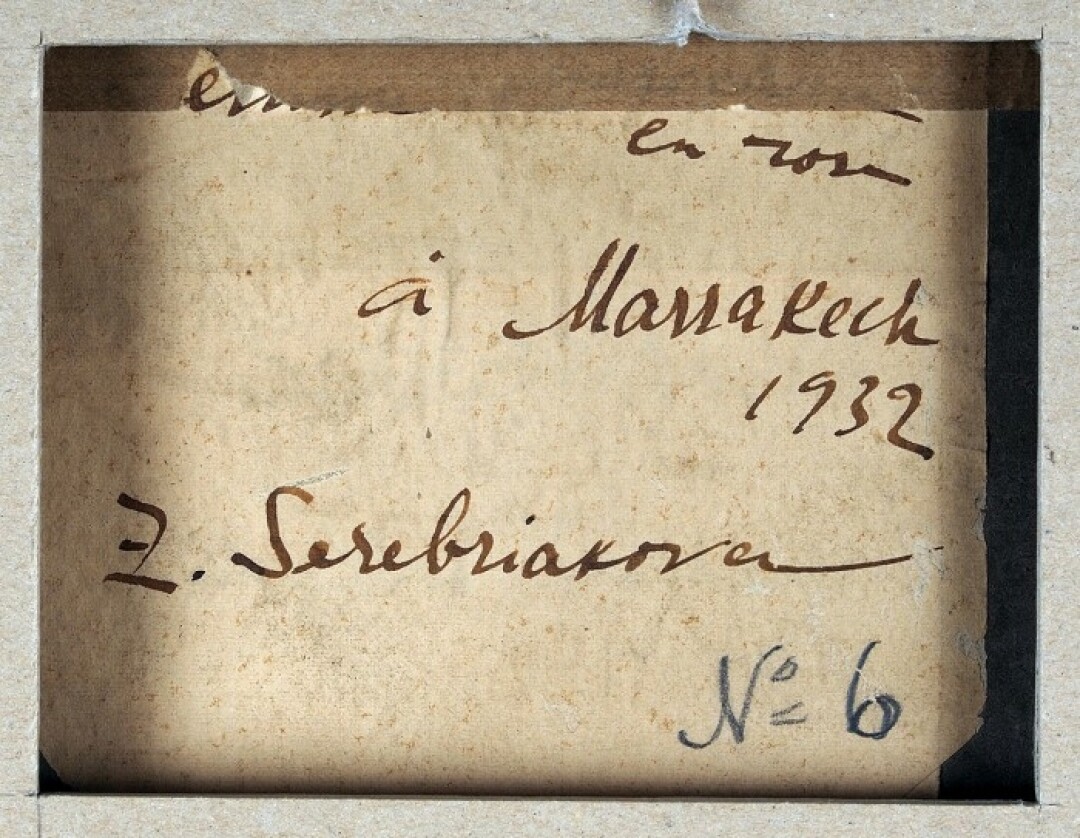 en rose
à Marrakech
1932
Z. Serebriakova
№ 6